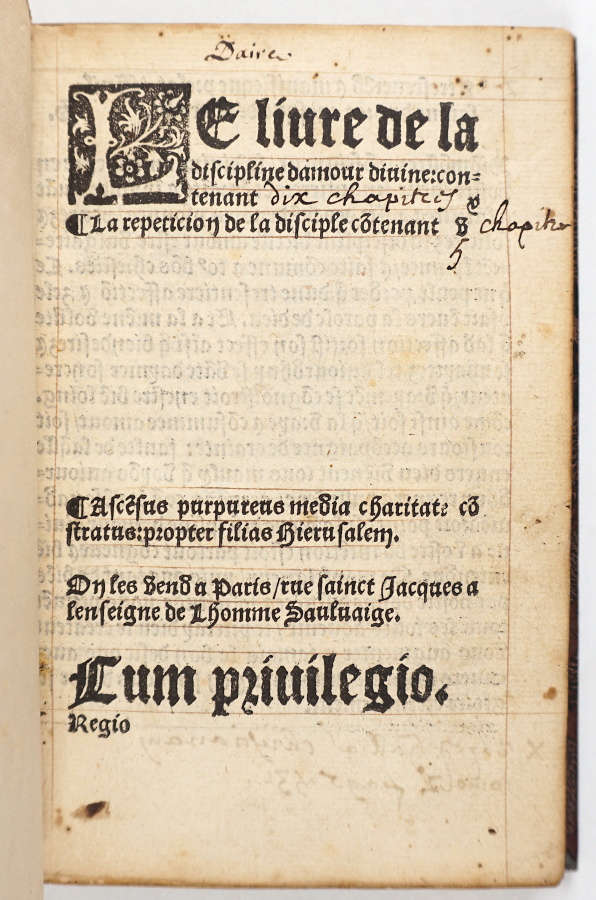 Daire
LE liure de la
discipline damour diuine:con=
tenant dix chapitres x
¶La repeticion de la disciple cõtenant v chapitre
5
¶Ascẽsus purpureus media charitate cõ
stratus:propter filias Hierusalem.
On les vend a Paris/rue sainct Jacques a
lenseigne de Lhomme Sauluaige.
Cum priuilegio.
Regio